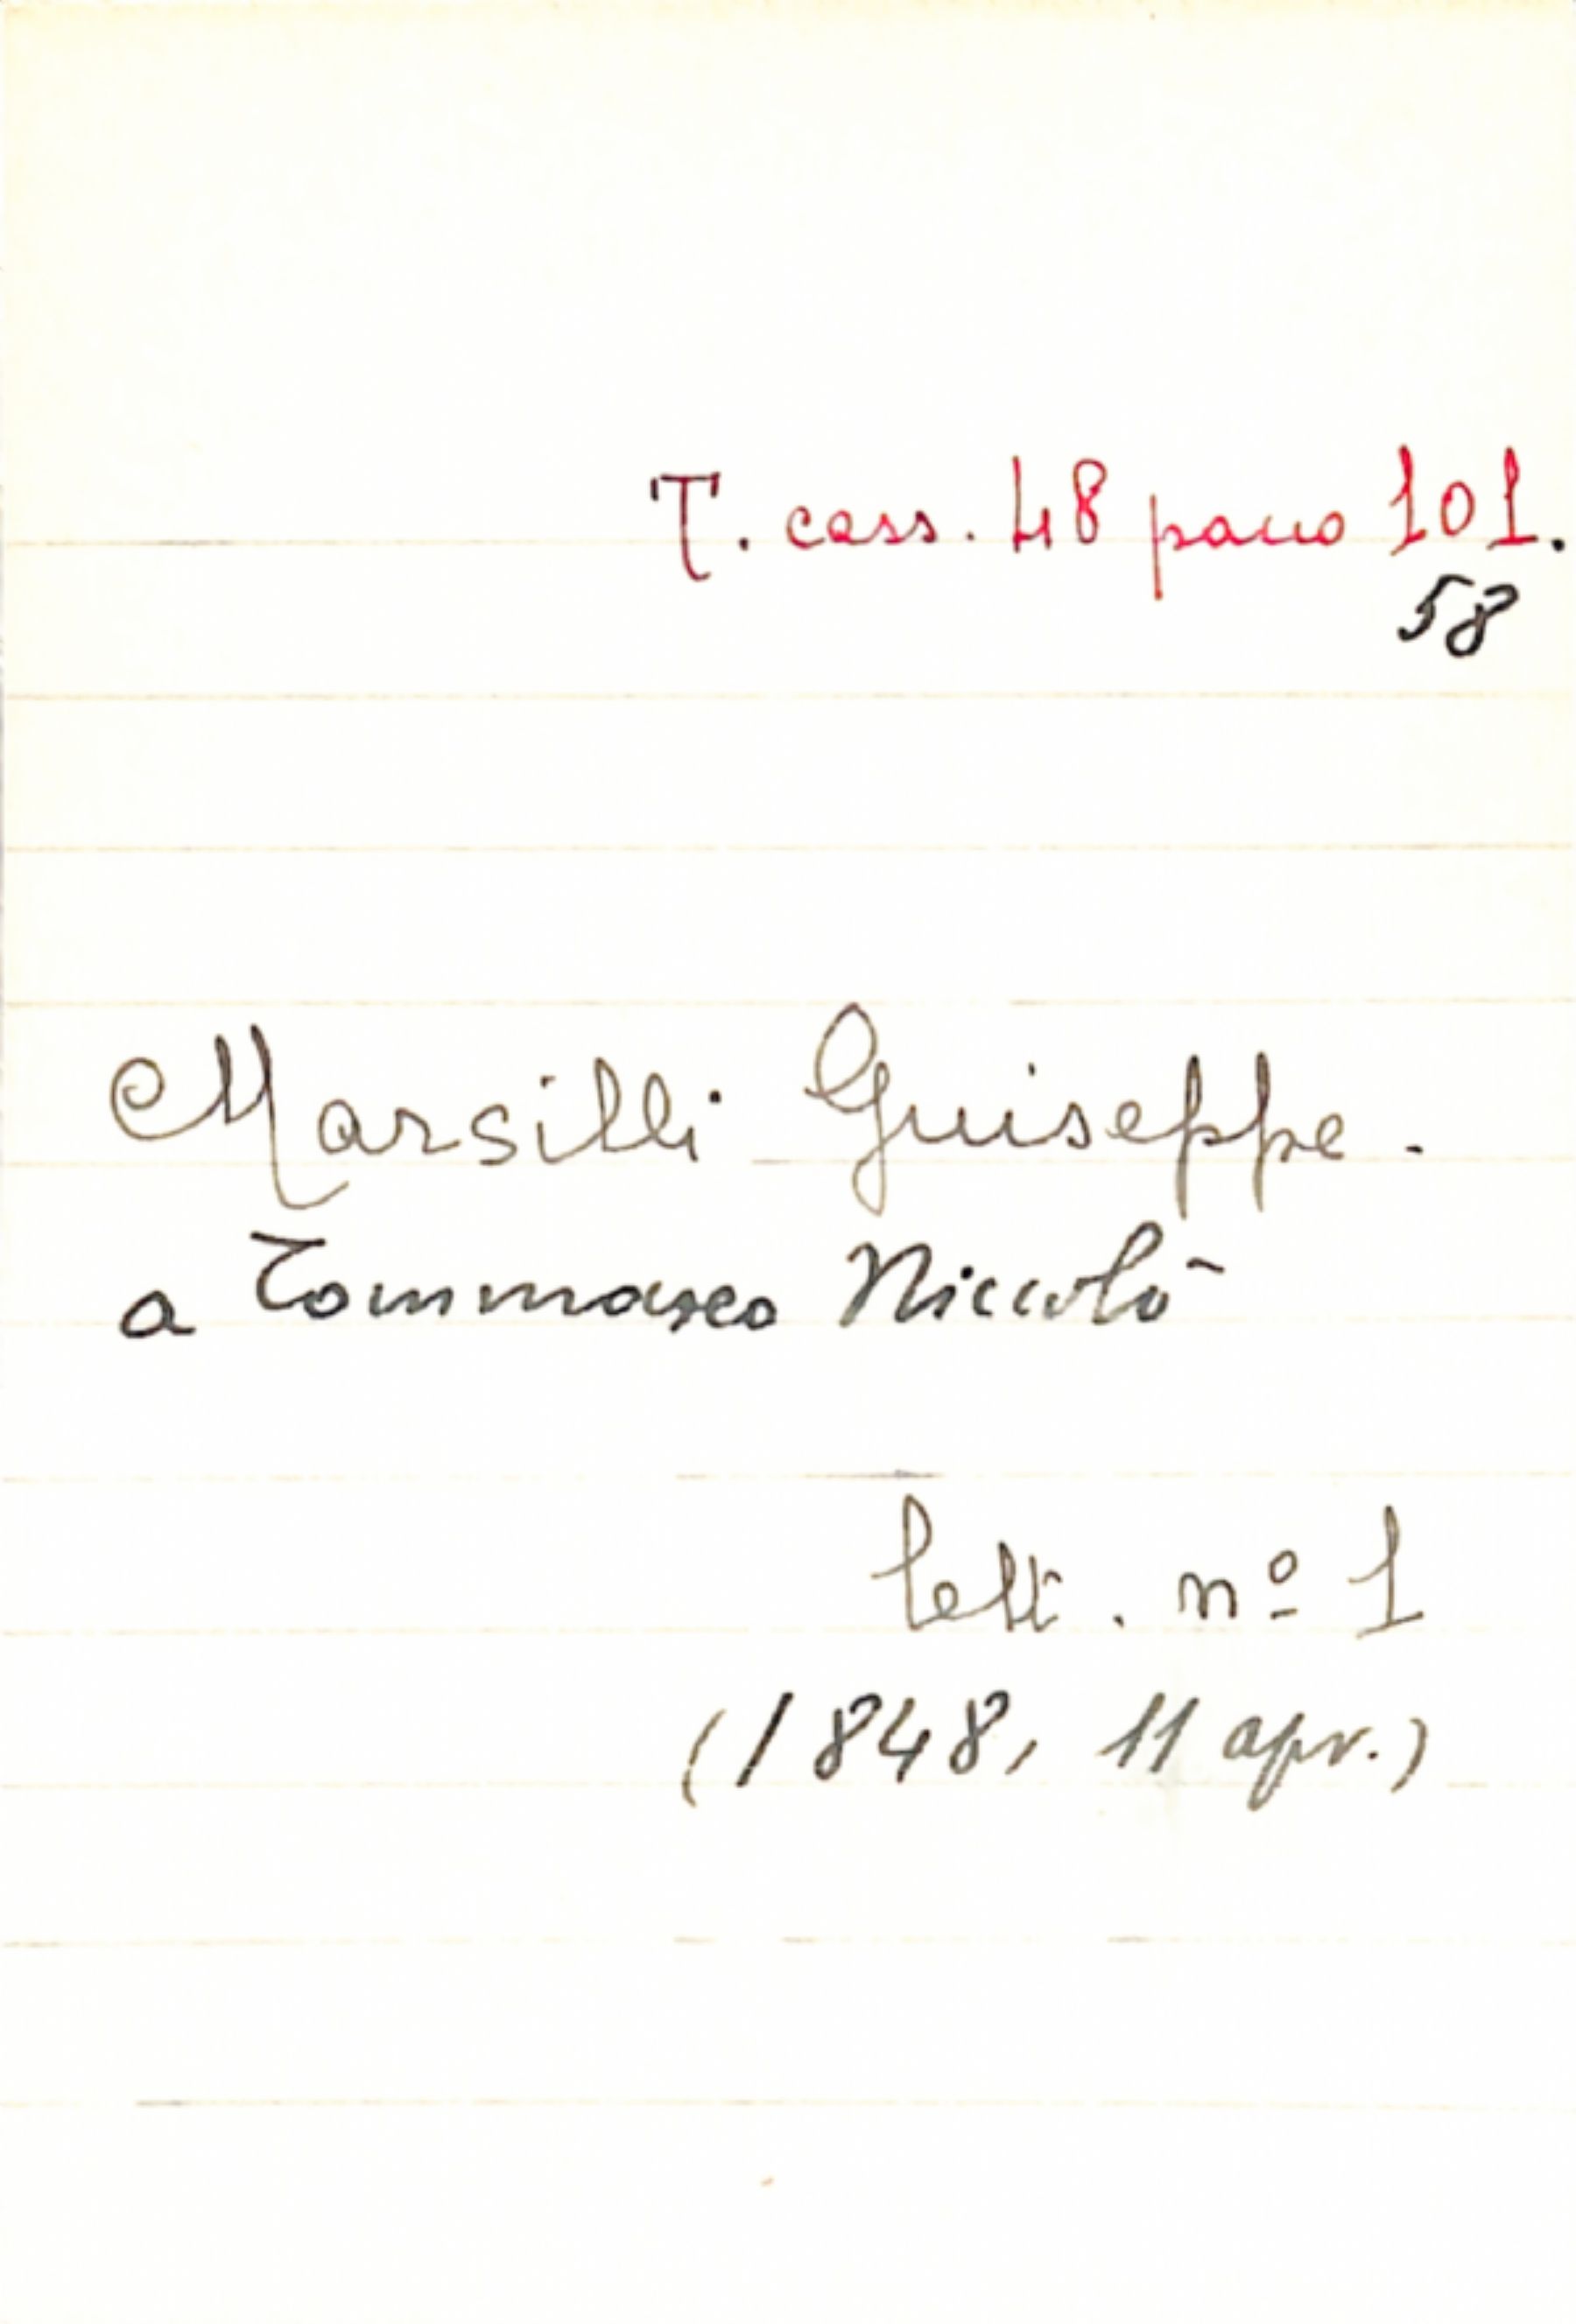 T. cass. 48 pacco 101.
58
Marsilli Giuseppe.
a Tommaseo Niccolò
lett. nº 1
(1848, 11 apr.)